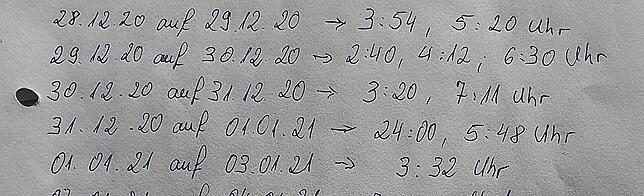 28.12.20 auf 29.12.20 → 3:54, 5:20 Uhr
29.12.20 auf 30.12.20 → 2:40, 4:12; 6:30 Uhr
30.12.20 auf 31.12.20 → 3:20, 7:11 Uhr
31.12.20 auf 01.01.21 → 24:00, 5:48 Uhr
01.01.21 auf 03.01.21 → 3:32 Uhr